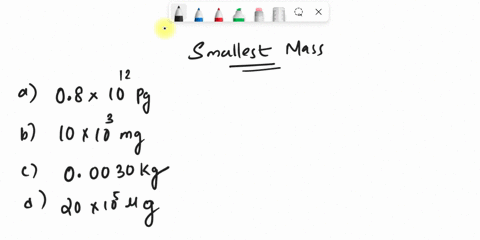 Smallest Mass
a) 0.8 × 10¹² pg
b) 10 × 10³ mg
c) 0.0030 kg
d) 20 × 10⁵ μg